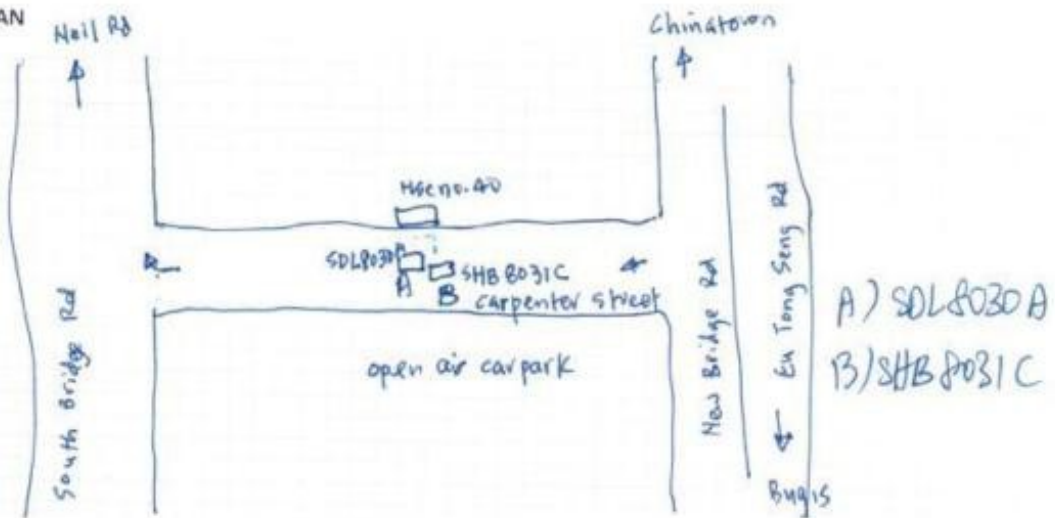 AN
Neil Rd
Chinatown
Hse no. 40
SDL8030A
A
SHB 8031C
B
carpenter street
open air carpark
South Bridge Rd
New Bridge Rd
Eu Tong Seng Rd
Bugis
A) SDL8030A
B) SHB8031C